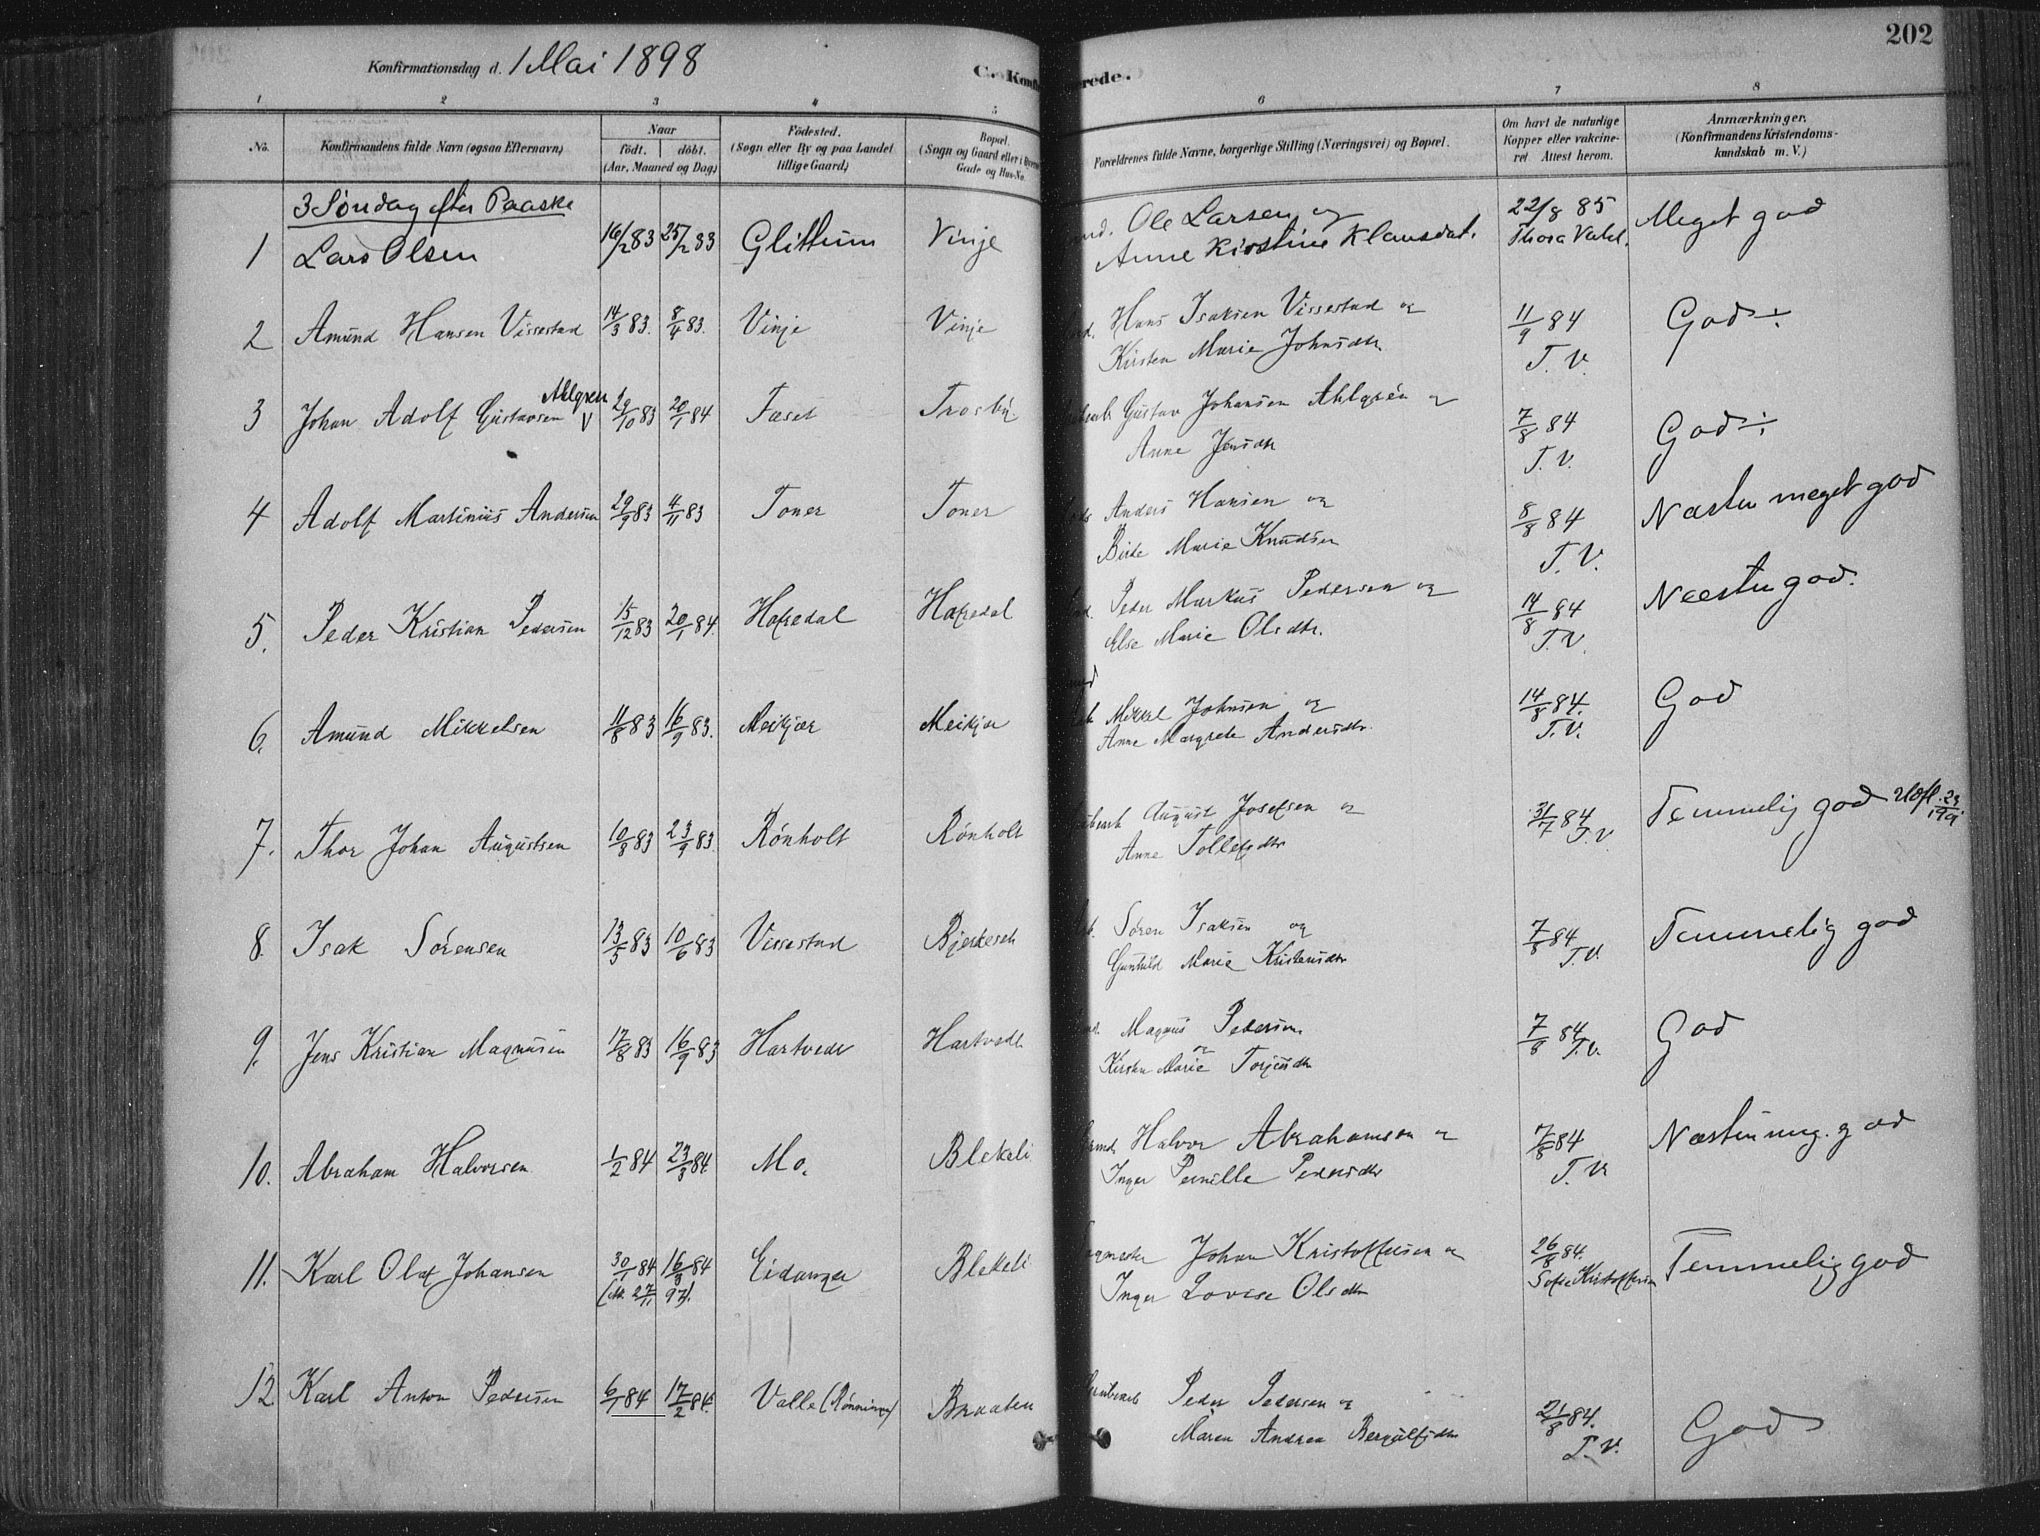 202
Konfirmationsdag d. 1 Mai 1898
C. Konfi rede.
1 2 3 4 5 6 7 8
No. Konfirmandens fulde Navn (ogsaa Efternavn) Naar født. døbt. (Aar, Maaned og Dag) Fødested. (Sogn eller By og paa Landet tillige Gaard) Bopæl. (Sogn og Gaard eller i Gade og Hus-No. Forældrenes fulde Navne, borgerlige Stilling (Næringsvei) og Bopæl. Om havt de naturlige Kopper eller vakcineret Attest herom. Anmærkninger. (Konfirmandens Kristendomskundskab m. V.)
3 Søndag efter Paaske
1 Lars Olsen 16/2 83 25/2 83 Glittum Vinje Ole Larsen og 22/8 85 Meget god
Anne Kirstine Klausdat. Thora Vatel.
2 Amund Hansen Vissestad 14/3 83. 8/4 83. Vinje Vinje Hans Isaksen Vissestad og 11/9 84 God ÷
Kirsten Marie Johnsdtr. T. V.
3 Johan Adolf Gustavsen Ahlgren 29/10 83 20/1 84 Faset Trosby Gustav Johansen Ahlgrén og 7/8 84 God ÷
Anne Jensdtr T. V.
4 Adolf Martinius Andersen 29/9 83 4/11 83 Toner Toner Anders Hansen og 8/8 84 Næsten meget god
Birte Marie Knudsen T. V.
5. Peder Kristian Pedersen 15/12 83 20/1 84. Hafredal Hafredal Peder Markus Pedersen og 14/8 84 Næsten god.
Else Marie Olsdtr. T. V.
6. Amund Mikkelsen 11/8 83 16/9 83. Meikjær Meikjær Mikkel Johnsen og 14/8 84. God
Anne Margrete Andersdtr. T. V.
7. Thor Johan Augustsen 10/8 83 23/9 83 Rönholt Rönholt August Josefsen og 31/7 84 Temmelig god
Anne Tollefsdtr T. V.
8. Isak Sörensen 13/5 83 10/6 83 Vissestad Bjerkeseth Sören Isaksen og 7/8 84 Temmelig god
Gunhild Marie Kristensdtr T. V.
9. Jens Kristian Magnusen 17/8 83 16/9 83 Hartvedt Hartvedt Magnus Pedersen 7/8 84 God
og
Kirsten Marie Torjusdtr T. V.
10. Abraham Halvorsen 1/2 84 23/3 84. Mo. Blekeli Halvor Abrahamsen og 7/8 84 Næsten meg. god
Inger Pernille Pedersdtr T. V.
11. Karl Olaf Johansen 30/1 84 16/3 84 Eidanger Blekeli Johan Kristoffersen og 26/8 84. Temmelig god
(Att. 27/11 97). Inger Lovise Olsdtr Sofie Kristoffersen
12 Karl Anton Pedersen 6/1 84 17/2 84. Valle (Rönningen) Braaten Peder Pedersen og 21/8 84. God
Maren Andrea Bergulfsdtr T. V.